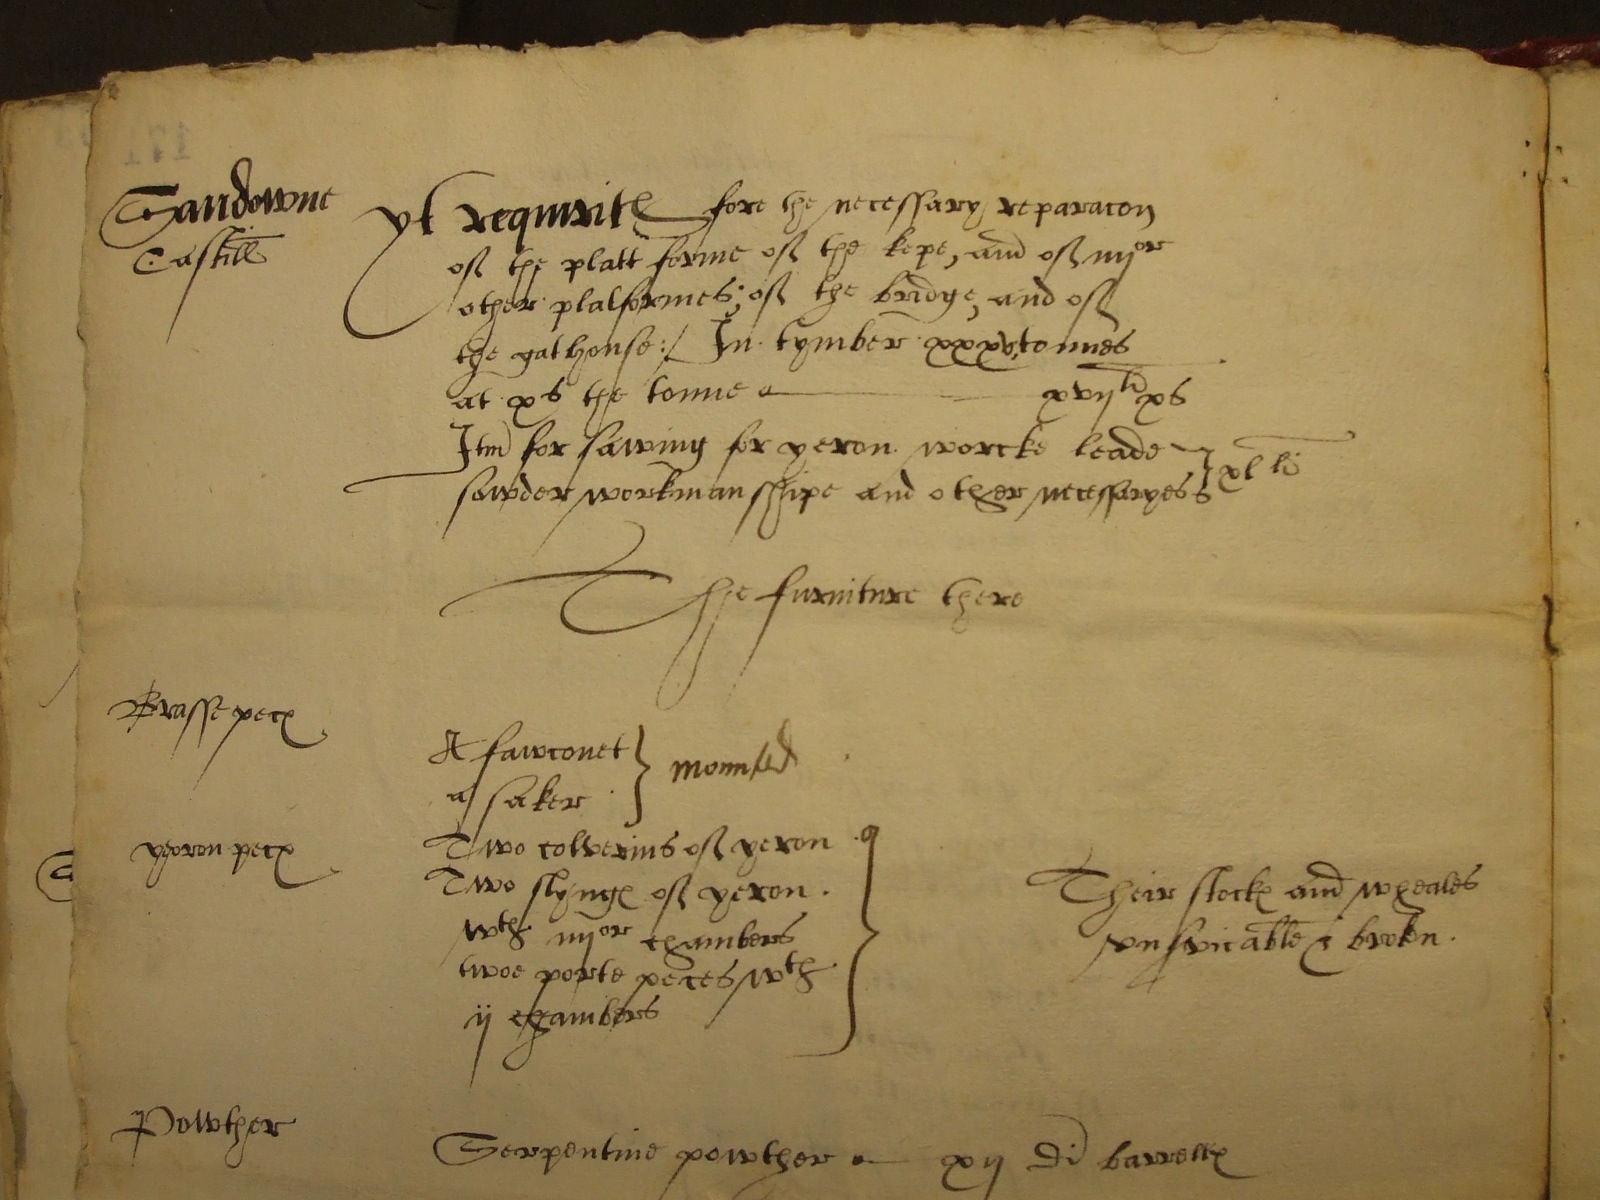 Sandowne
Castill
yt requirith fore the necessary reparacon
off the platt forme off the kepe, and off iiijor
other platformes; off the bridge, and off
the gathouse:/ In tymber xxxv tonnes
at xs the tonne xvijli xs
Itm for sawing for yeron worcke leade
sowder workmanshipe and other necessaryes xlli
The furniture there
Brasse pecs
A fawconet
a saker mounted
yeron pecs
Two colverins off yeron
Two slyngs off yeron
wth iiijor chambers
twoe porte peces wth
ij chambers
Their stocks and wheales
unsvicable & broken.
Powther
Serpentine powther xij di barrells